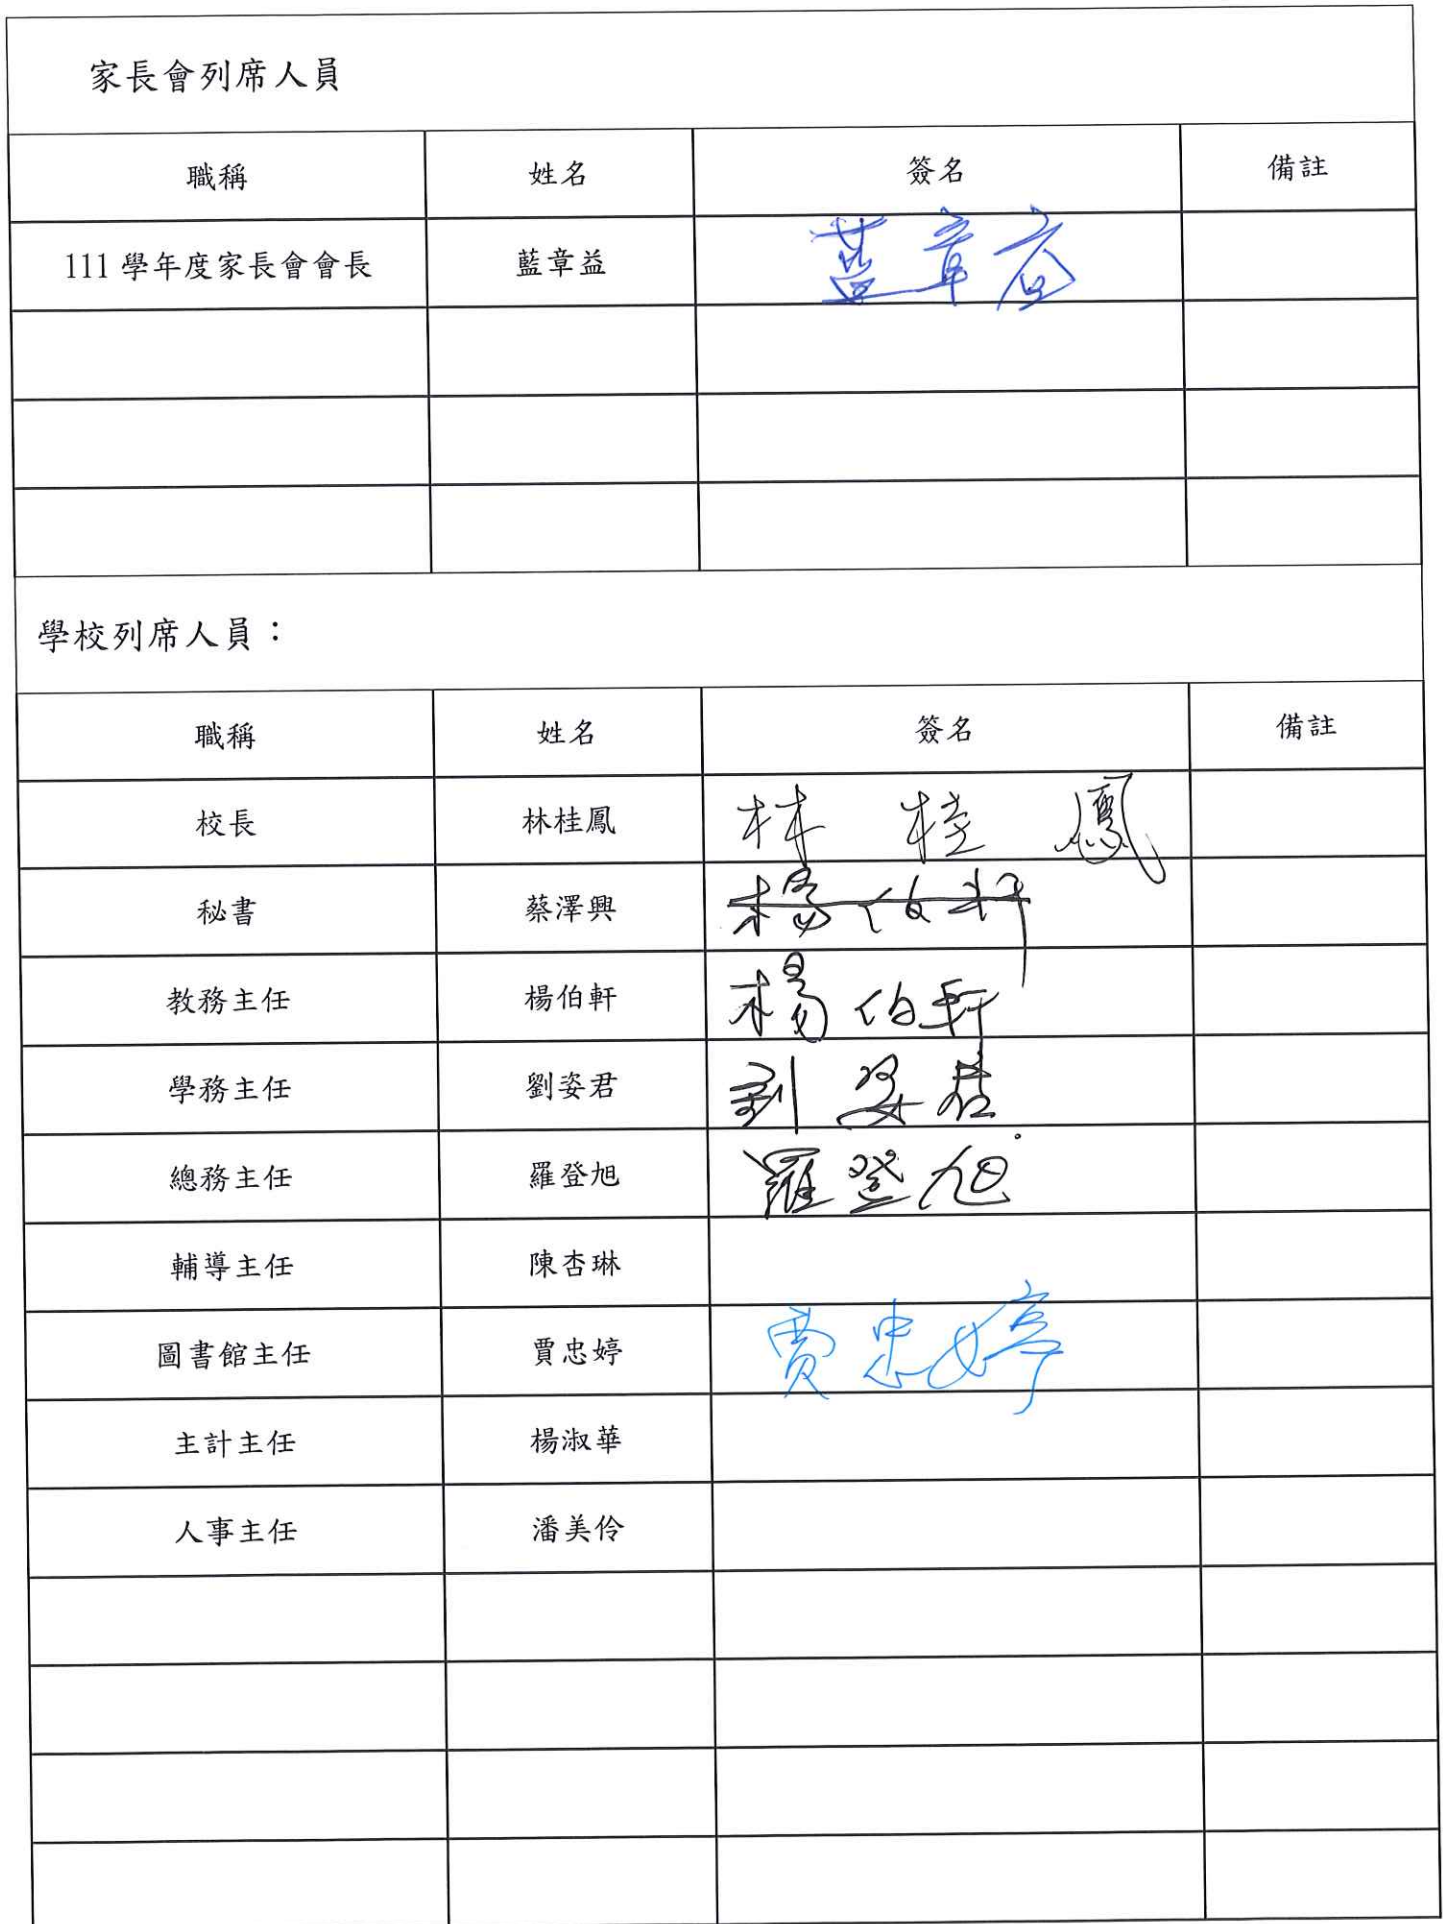 家長會列席人員
職稱 姓名 簽名 備註
111 學年度家長會會長 藍章益 藍章益
學校列席人員：
職稱 姓名 簽名 備註
校長 林桂鳳 林桂鳳
秘書 蔡澤興 楊伯軒
教務主任 楊伯軒 楊伯軒
學務主任 劉姿君 刘姿君
總務主任 羅登旭 羅登旭
輔導主任 陳杏琳
圖書館主任 賈忠婷 賈忠婷
主計主任 楊淑華
人事主任 潘美伶